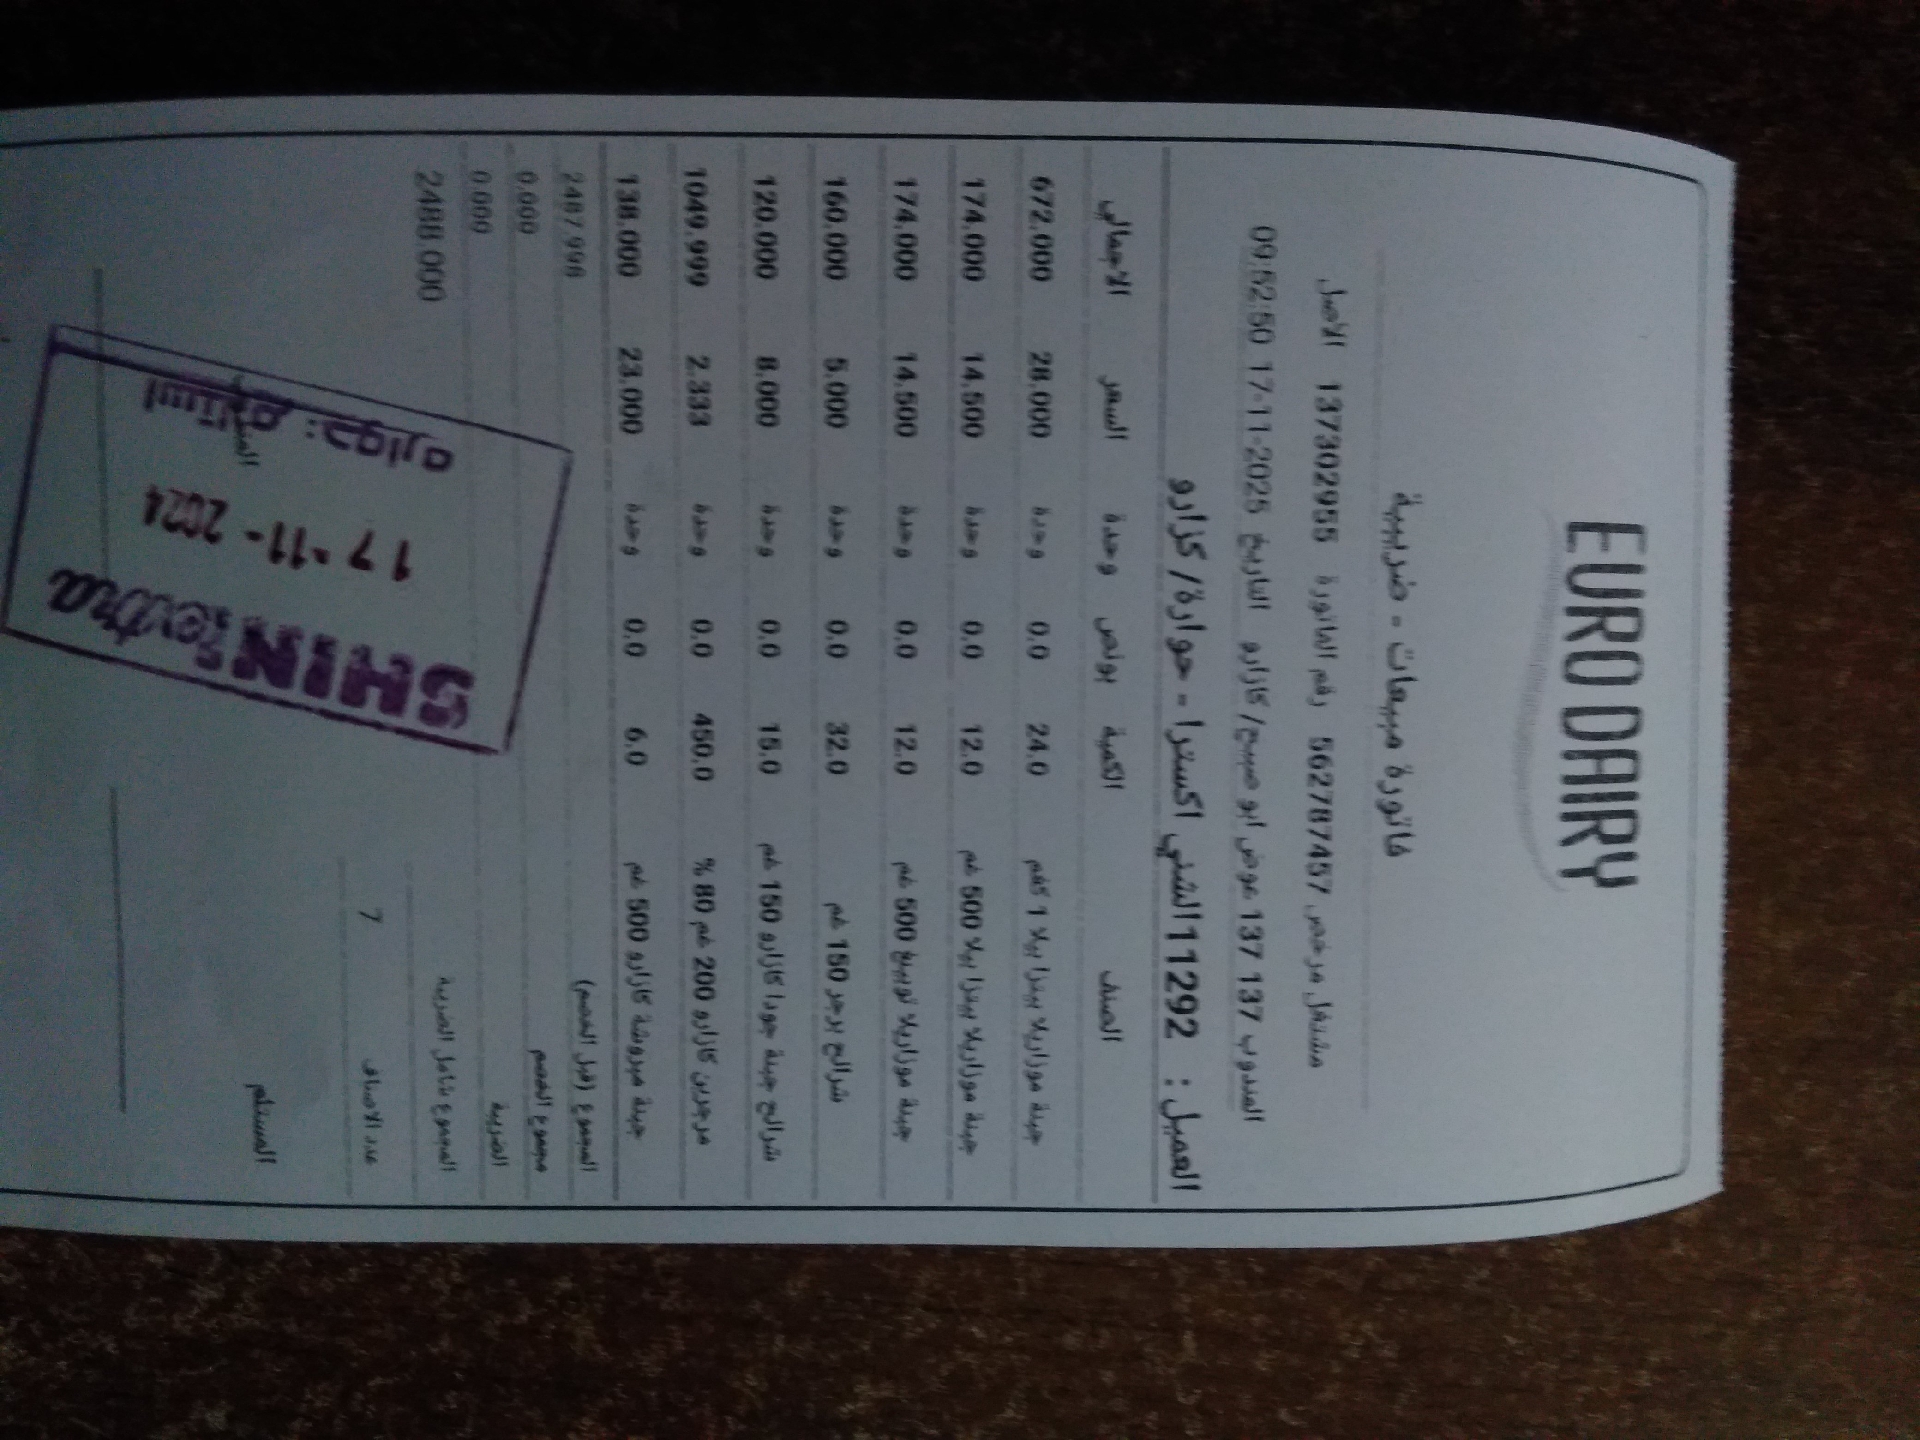 EURO DAIRY
فاتورة مبيعات - ضريبية
مشتغل مرخص 562787457 رقم الفاتورة 137302955 الاصل
المندوب 137 137 عوض ابو صبيح/كازارو التاريخ 17-11-2025 09:52:50
العميل : 11292الشني اكسترا - حوارة/ كزارو
الصنف الكمية بونص وحدة السعر الاجمالي
جبنة موزاريلا بيتزا بيلا 1 كغم 24.0 0.0 وحدة 28.000 672.000
جبنة موزاريلا بيتزا بيلا 500 غم 12.0 0.0 وحدة 14.500 174.000
جبنة موزاريلا توبينغ 500 غم 12.0 0.0 وحدة 14.500 174.000
شرائح برجر 150 غم 32.0 0.0 وحدة 5.000 160.000
شرائح جبنة جودا كازارو 150 غم 15.0 0.0 وحدة 8.000 120.000
مرجرين كازارو 200 غم 80 % 450.0 0.0 وحدة 2.333 1049.999
جبنة مبروشة كازارو 500 غم 6.0 0.0 وحدة 23.000 138.000
المجموع (قبل الخصم) 2487.998
مجموع الخصم 0.000
الضريبة 0.000
المجموع شامل الضريبة 2488.000
عدد الاصناف 7
المستلم
SHINI extra
17 -11- 2024
استلام : حواره